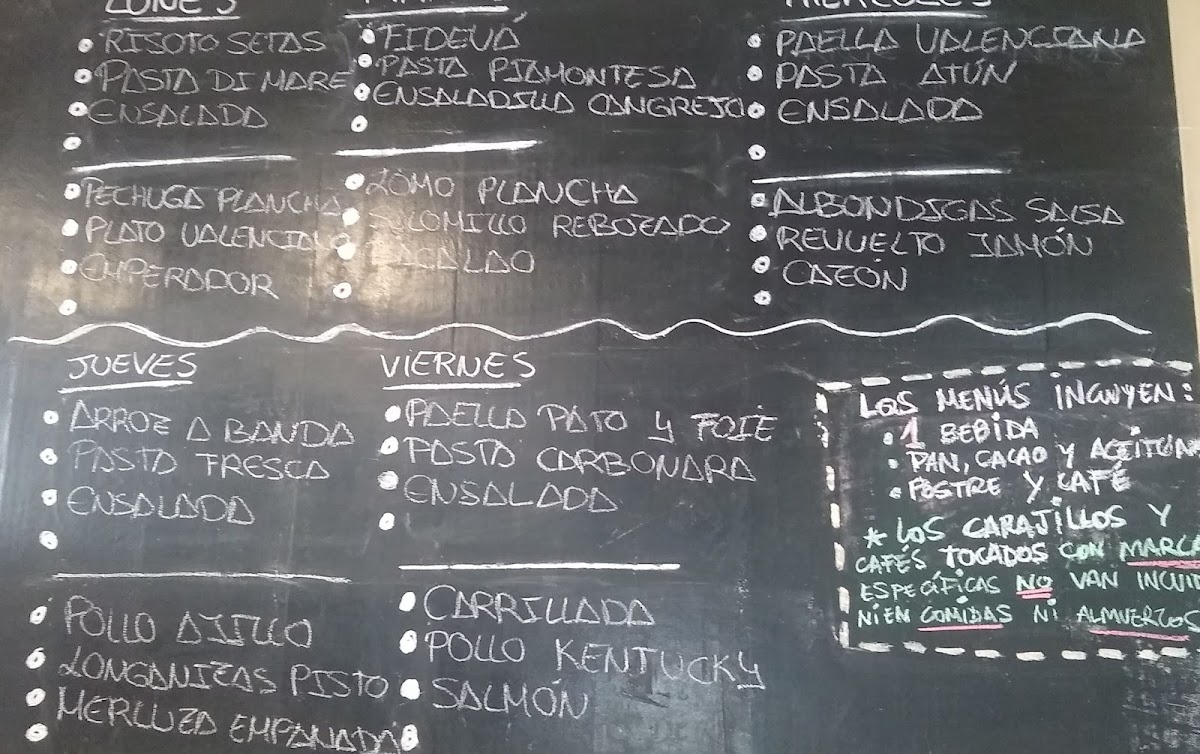 LUNES
RISOTO SETAS
PASTA DI MARE
ENSALADA
PECHUGA PLANCHA
PLATO VALENCIANO
EMPERADOR
FIDEUÁ
PASTA PIAMONTESA
ENSALADILLA CANGREJO
LOMO PLANCHA
SOLOMILLO REBOZADO
BACALAO
MIÉRCOLES
PAELLA VALENCIANA
PASTA ATÚN
ENSALADA
ALBONDIGAS SALSA
REVUELTO JAMÓN
CAZÓN
JUEVES
ARROZ A BANDA
PASTA FRESCA
ENSALADA
POLLO AJILLO
LONGANIZAS PISTO
MERLUZA EMPANADA
VIERNES
PAELLA PATO Y FOIE
PASTA CARBONARA
ENSALADA
CARRILLADA
POLLO KENTUCKY
SALMÓN
LOS MENÚS INCUYEN:
1 BEBIDA
PAN, CACAO Y ACEITUNA
POSTRE Y CAFÉ
* LOS CARAJILLOS Y
CAFÉS TOCADOS CON MARCA
ESPECÍFICAS NO VAN INCUI
NI EN COMIDAS NI ALMUERZOS